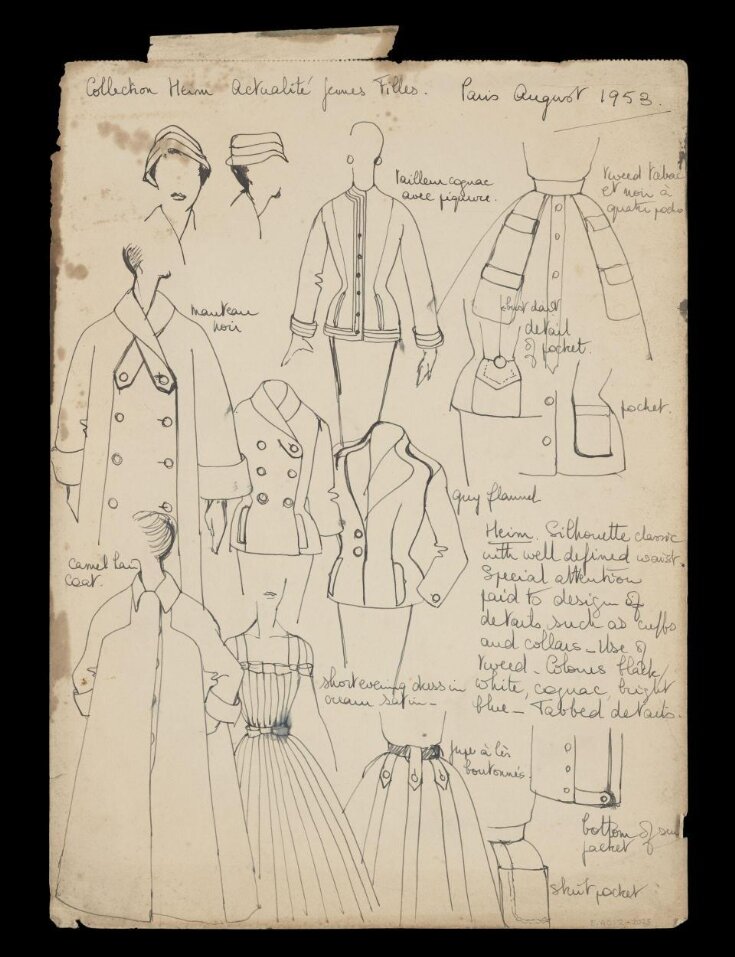 Collection Heim Actualité Jeunes Filles. Paris August 1953.
tailleur cognac
avec piqûre.
tweed tabac
et noir à
quatre
manteau
noir
detail
of
pocket.
pocket.
grey flannel
camel hair
coat.
Heim. Silhouette classic
with well defined waist.
Special attention
paid to design of
details such as cuffs
and collars - Use of
tweed - Colours black,
white, cognac, bright
blue - Tabbed details.
short evening dress in
cream satin -
jupe à
boutonnés
bottom of
jacket
skirt pocket